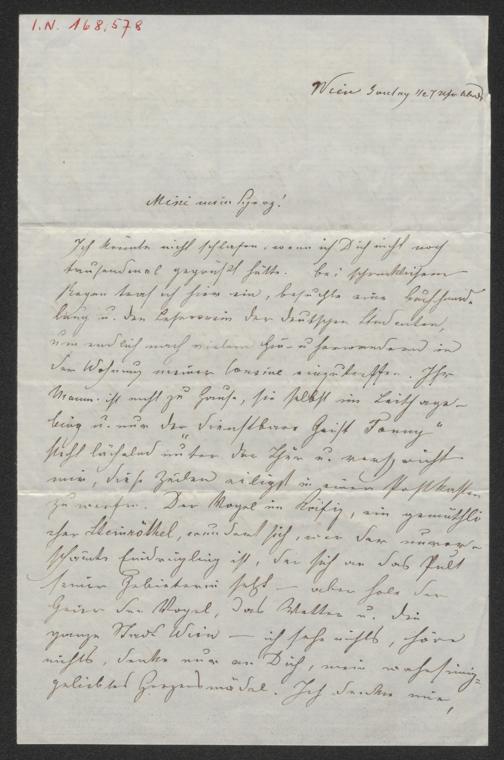 I.N. 168.578
Wien Sonntag 1/2 7 Uhr Abends
Mizi mein Herz!
Ich könnte nicht schlafen, wenn ich Dich nicht noch
tausendmal gegrüßt hätte. Bei schrecklichem
Regen traf ich hier ein, besuchte eine Buchhand-
lung u. den Leseverein der deutschen Studenten,
um endlich nach vielem Hin- u Herwandern in
der Wohnung meiner Cousine einzutreffen. Ihr
Mann ist nicht zu Hause, sie selbst im Leithage-
birg u. nur der dienstbare Geist "Fanny"
steht lächelnd unter der Thür u. verspricht
mir, diese Zeilen eiligst in einen Postkasten
zu werfen. Der Vogel im Käfig, ein gemüthli
cher Steinröthel, wundert sich, wer der unver-
schämte Eindringling ist, der sich an das Pult
seiner Gebieterin setzt – aber hole der
Geier den Vogel, das Wetter u. die
ganze Stadt Wien – ich sehe nichts, höre
nichts, denke nur an Dich, mein wahnsinnig-
geliebtes Herzensmädel. Ich denke mir,